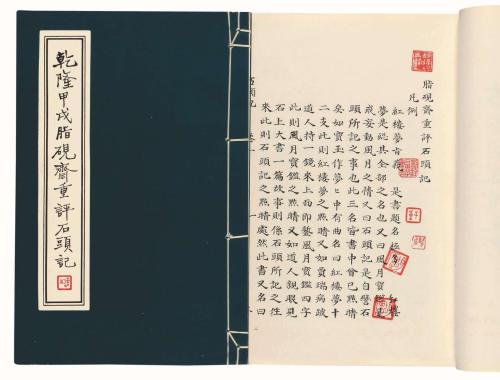 乾隆甲戌脂硯齋重評石頭記
脂硯齋重評石頭記
凡例
紅樓夢旨義 是書題名極
夢是總其全部之名也又曰風月寶鑑是
戒妄動風月之情又曰石頭記是自譬石
頭所記之事也此三名皆書中曾已點睛
矣如寶玉作夢夢中有曲名曰紅樓夢十
二支此則紅樓夢之點睛又如賈瑞病跛
道人持一鏡來上面即鏨風月寶鑑四字
此則風月寶鑑之點睛又如道人親眼見
石上大書一篇故事則係石頭所記之往
來此則石頭記之點睛處然此書又名曰